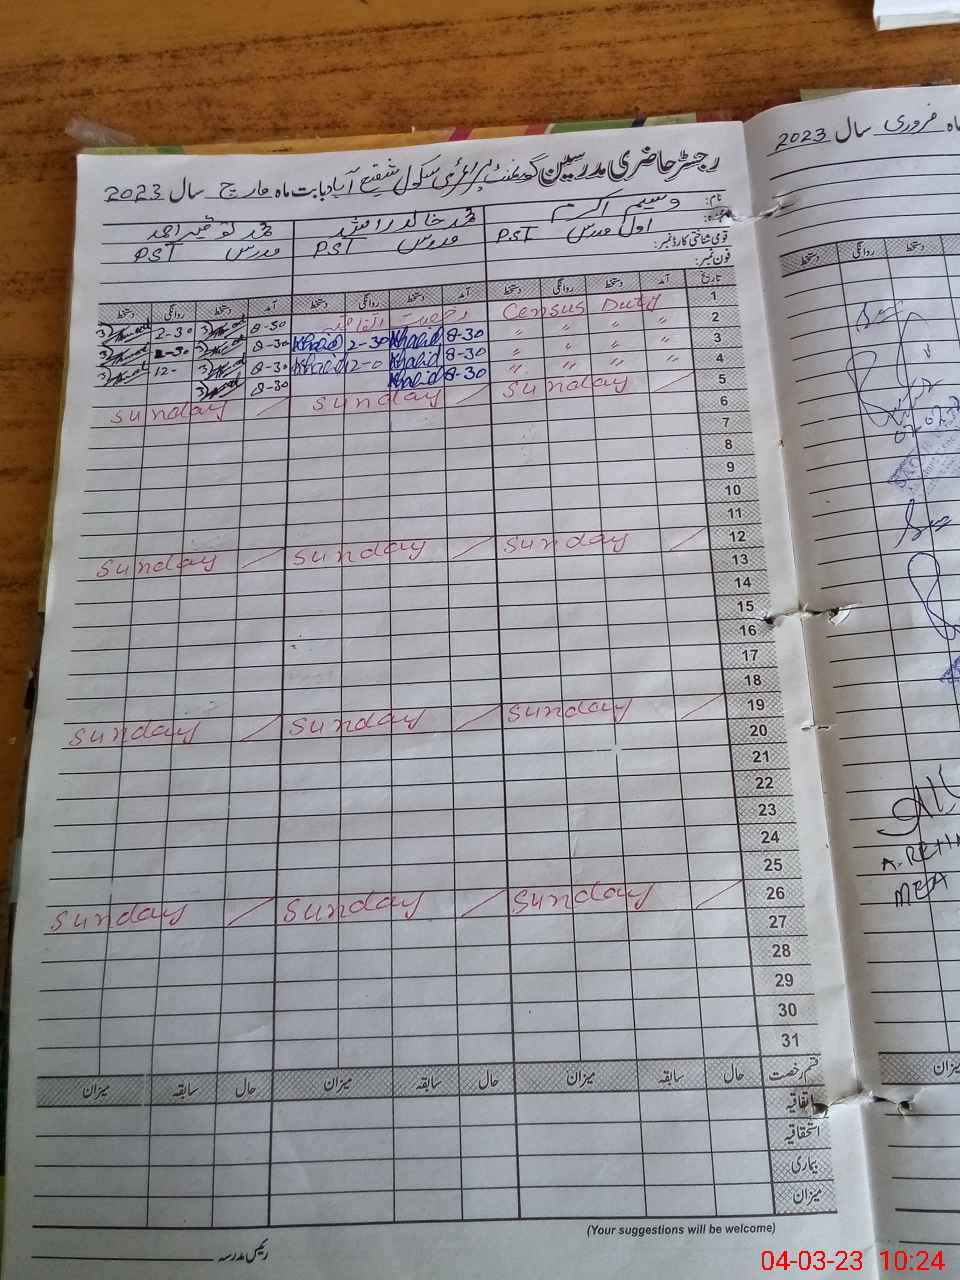 رجسٹر حاضری مدرسین گورنمنٹ پرائمری سکول شفیع آباد بابت ماہ مارچ سال 2023
نام: وسیم اکرم محمد خالد راشد محمد توقیر احمد
اول مدرس PST مدرس PST مدرس PST
قومی شناختی کارڈ نمبر:
فون نمبر:
تاریخ آمد دستخط روانگی دستخط آمد دستخط روانگی دستخط آمد دستخط روانگی دستخط
1 Census Duty رخصت اتفاقیہ 8-30 2-30
2 " " " " 8-30 Khalid 2-30 Khalid 8-30
3 " " " " 8-30 Khalid 12-0 Khalid 8-30 12-
4 " " " " 8-30 Khalid 8-30
5 Sunday Sunday Sunday
6
7
8
9
10
11
12 Sunday Sunday Sunday
13
14
15
16
17
18
19 Sunday Sunday Sunday
20
21
22
23
24
25
26 Sunday Sunday Sunday
27
28
29
30
31
قسم رخصت حال سابقہ میزان حال سابقہ میزان حال سابقہ میزان
اتفاقیہ
استحقاقیہ
بیماری
میزان
(Your suggestions will be welcome)
رئیس مدرسہ
ماہ فروری سال 2023
دستخط روانگی دستخط
MEA
میزان
04-03-23 10:24